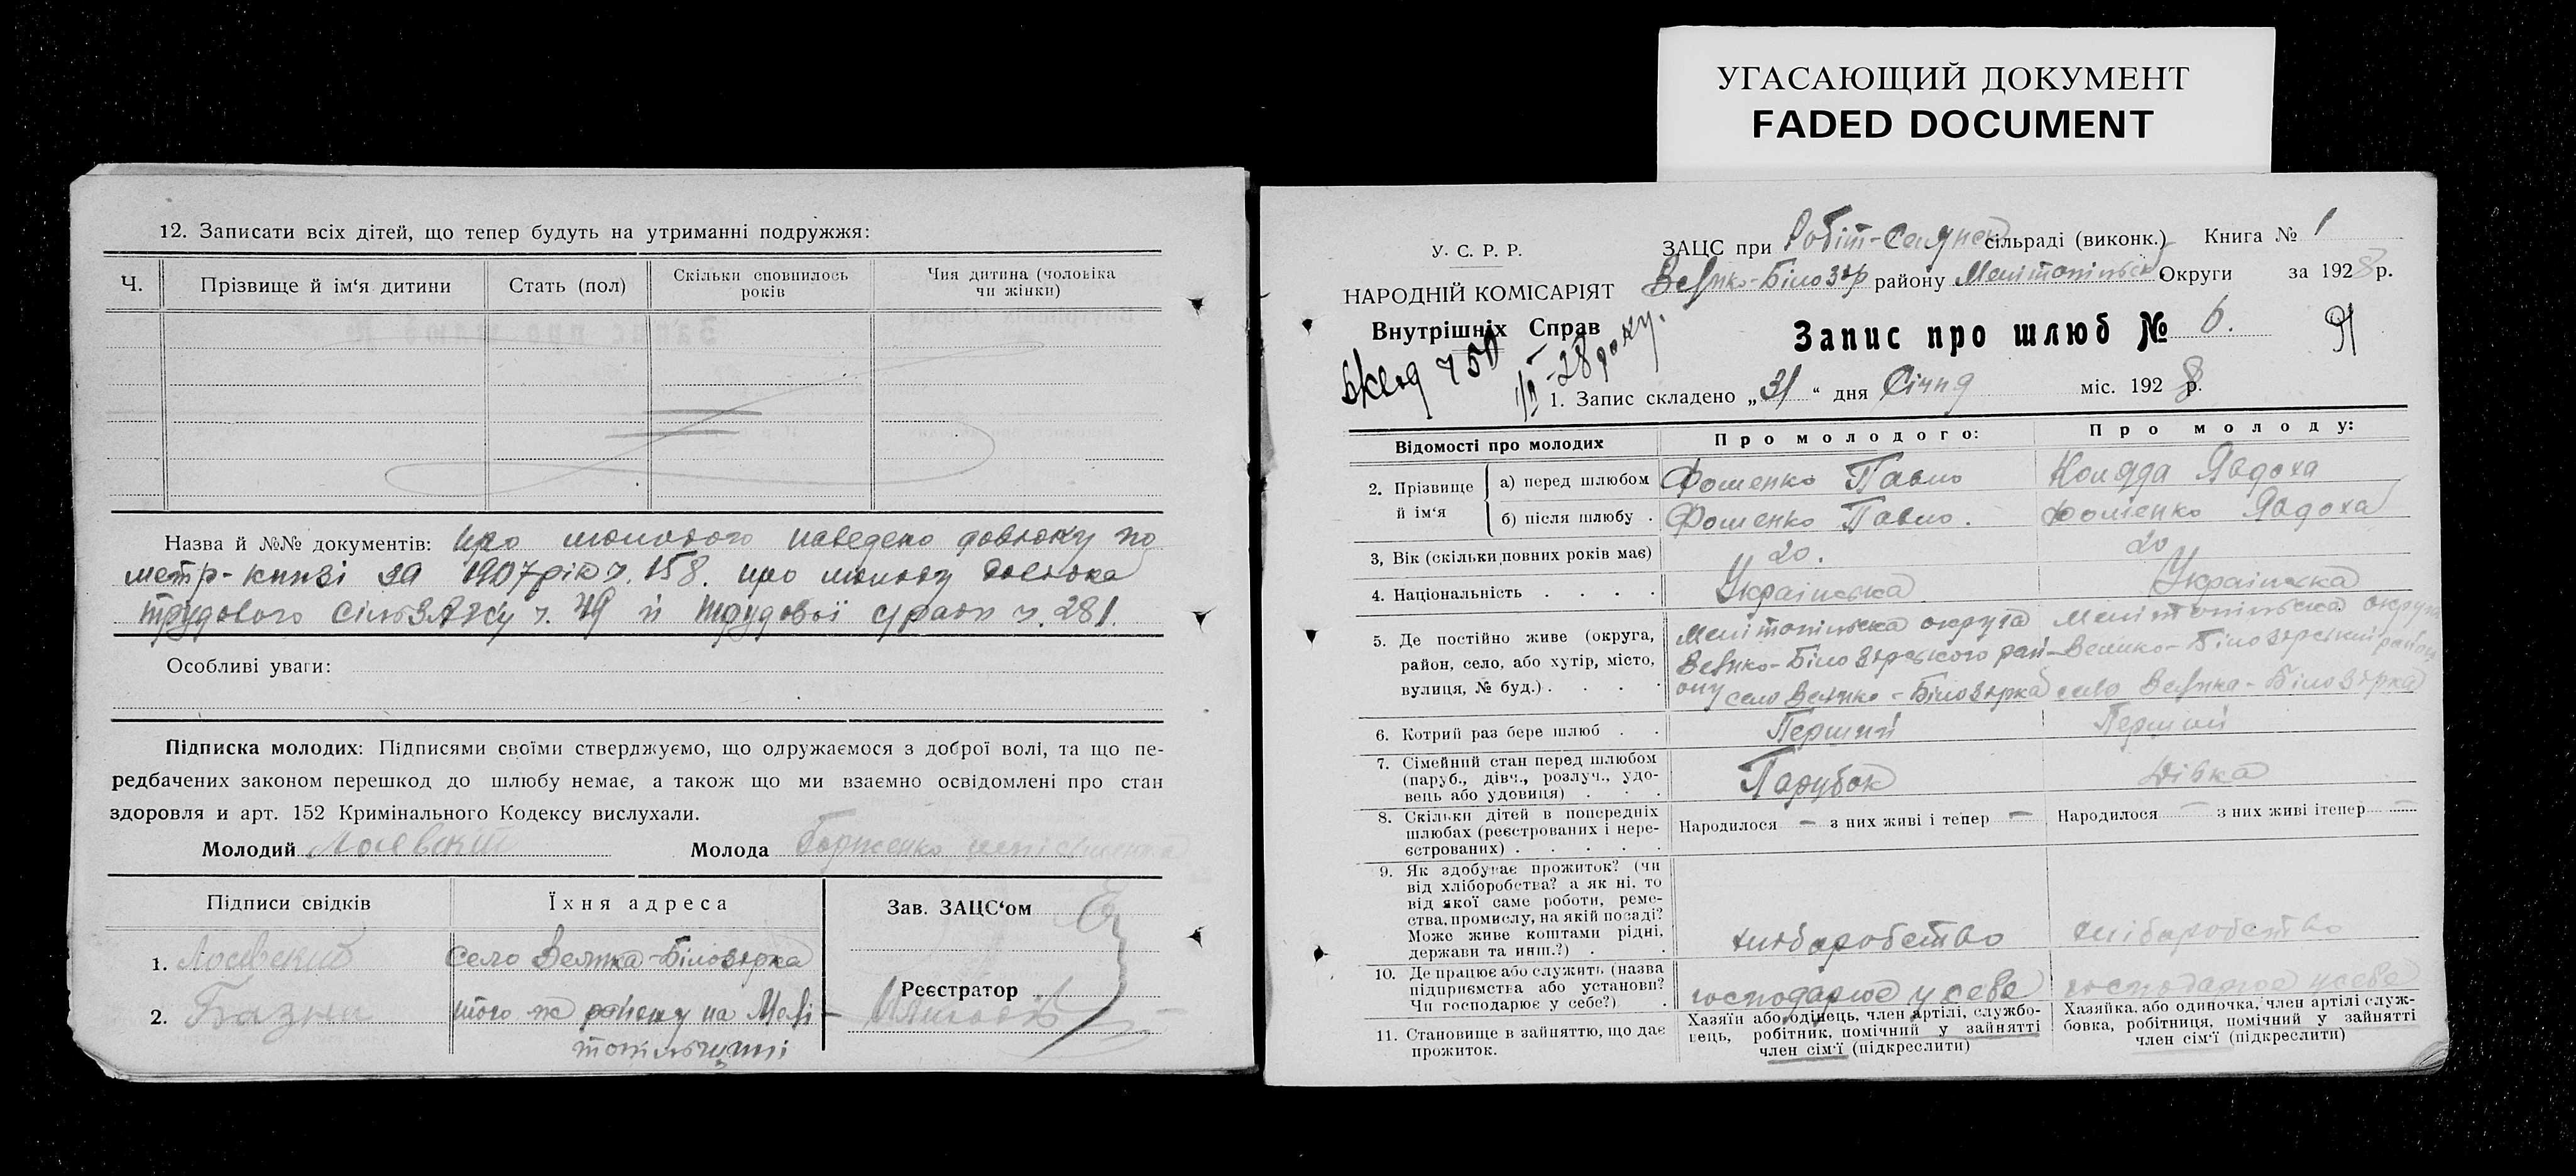 УГАСАЮЩИЙ ДОКУМЕНТ
FADED DOCUMENT
12. Записати всіх дітей, що тепер будуть на утриманні подружжя:
Ч.
Прізвище й ім'я дитини
Стать (пол)
Скільки сповнилось
років
Чия дитина (чоловіка
чи жінки)
Назва й №№ документів: про молодого наведено довідку по
метр-книзі за 1907 рік ч. 158. про молоду довідка
трудового ч. 49 й трудової ч. 281.
Особливі уваги:
Підписка молодих: Підписями своїми стверджуємо, що одружаємося з доброї волі, та що пе-
редбачених законом перешкод до шлюбу немає, а також що ми взаємно освідомлені про стан
здоровля и арт. 152 Кримінального Кодексу вислухали.
Молодий Лоявский Молода
Підписи свідків
Їхня адреса
Зав. ЗАЦС'ом
1. Лосівский село Велика-Білозірка
2. того ж району на Мелі-
топільщині
Реєстратор
У. С. Р. Р.
НАРОДНІЙ КОМІСАРІЯТ
Внутрішніх Справ
Вход ч 50
1/II -28 року.
ЗАЦС при Робіт-Селянськ сільраді (виконк.) Книга № 1
Велико-Білозір району Мелітопільськ Округи за 1928 р.
Запис про шлюб № 6.
91
1. Запис складено „31“ дня Січня міс. 1928 р.
Відомості про молодих
Про молодого:
Про молоду:
2. Прізвище й ім'я
а) перед шлюбом Фоменко Павло Коляда Явдоха
б) після шлюбу . Фоменко Павло. Фоменко Явдоха
3, Вік (скільки повних років має) 20. 20
4. Національність . . . . Українська Українська
5. Де постійно живе (округа, Мелітопільська округа Мелітопільська округа
район, село, або хутір, місто, Велико-Білозірського рай- Велико-Білозірський район
вулиця, № буд.) . . . . ону село Велико-Білозірка село Велика-Білозірка
6. Котрий раз бере шлюб . . Перший Перший
7. Сімейний стан перед шлюбом
(паруб., дівч., розлуч., удо-
вець або удовиця) . . . Парубок Дівка
8. Скільки дітей в попередніх
шлюбах (реєстрованих і нере-
єстрованих) . . . . .
Народилося — з них живі і тепер —
Народилося — з них живі ітепер —
9. Як здобуває прожиток? (чи
від хліборобства? а як ні, то
від якої саме роботи, реме-
ства, промислу, на якій посаді?
Може живе коштами рідні,
держави та инш.?) . .
хліборобство хліборобство
10. Де працює або служить (назва
підприємства або установи?
Чи господарює у себе?) .
господарює у себе господарює у себе
11. Становище в зайняттю, що дає
прожиток.
Хазяїн або одінець, член артілі, службо-
вець, робітник, помічний у зайнятті
член сім'ї (підкреслити)
Хазяйка, або одиночка, член артілі служ-
бовка, робітниця, помічний у зайнятті
член сім'ї (підкреслити)